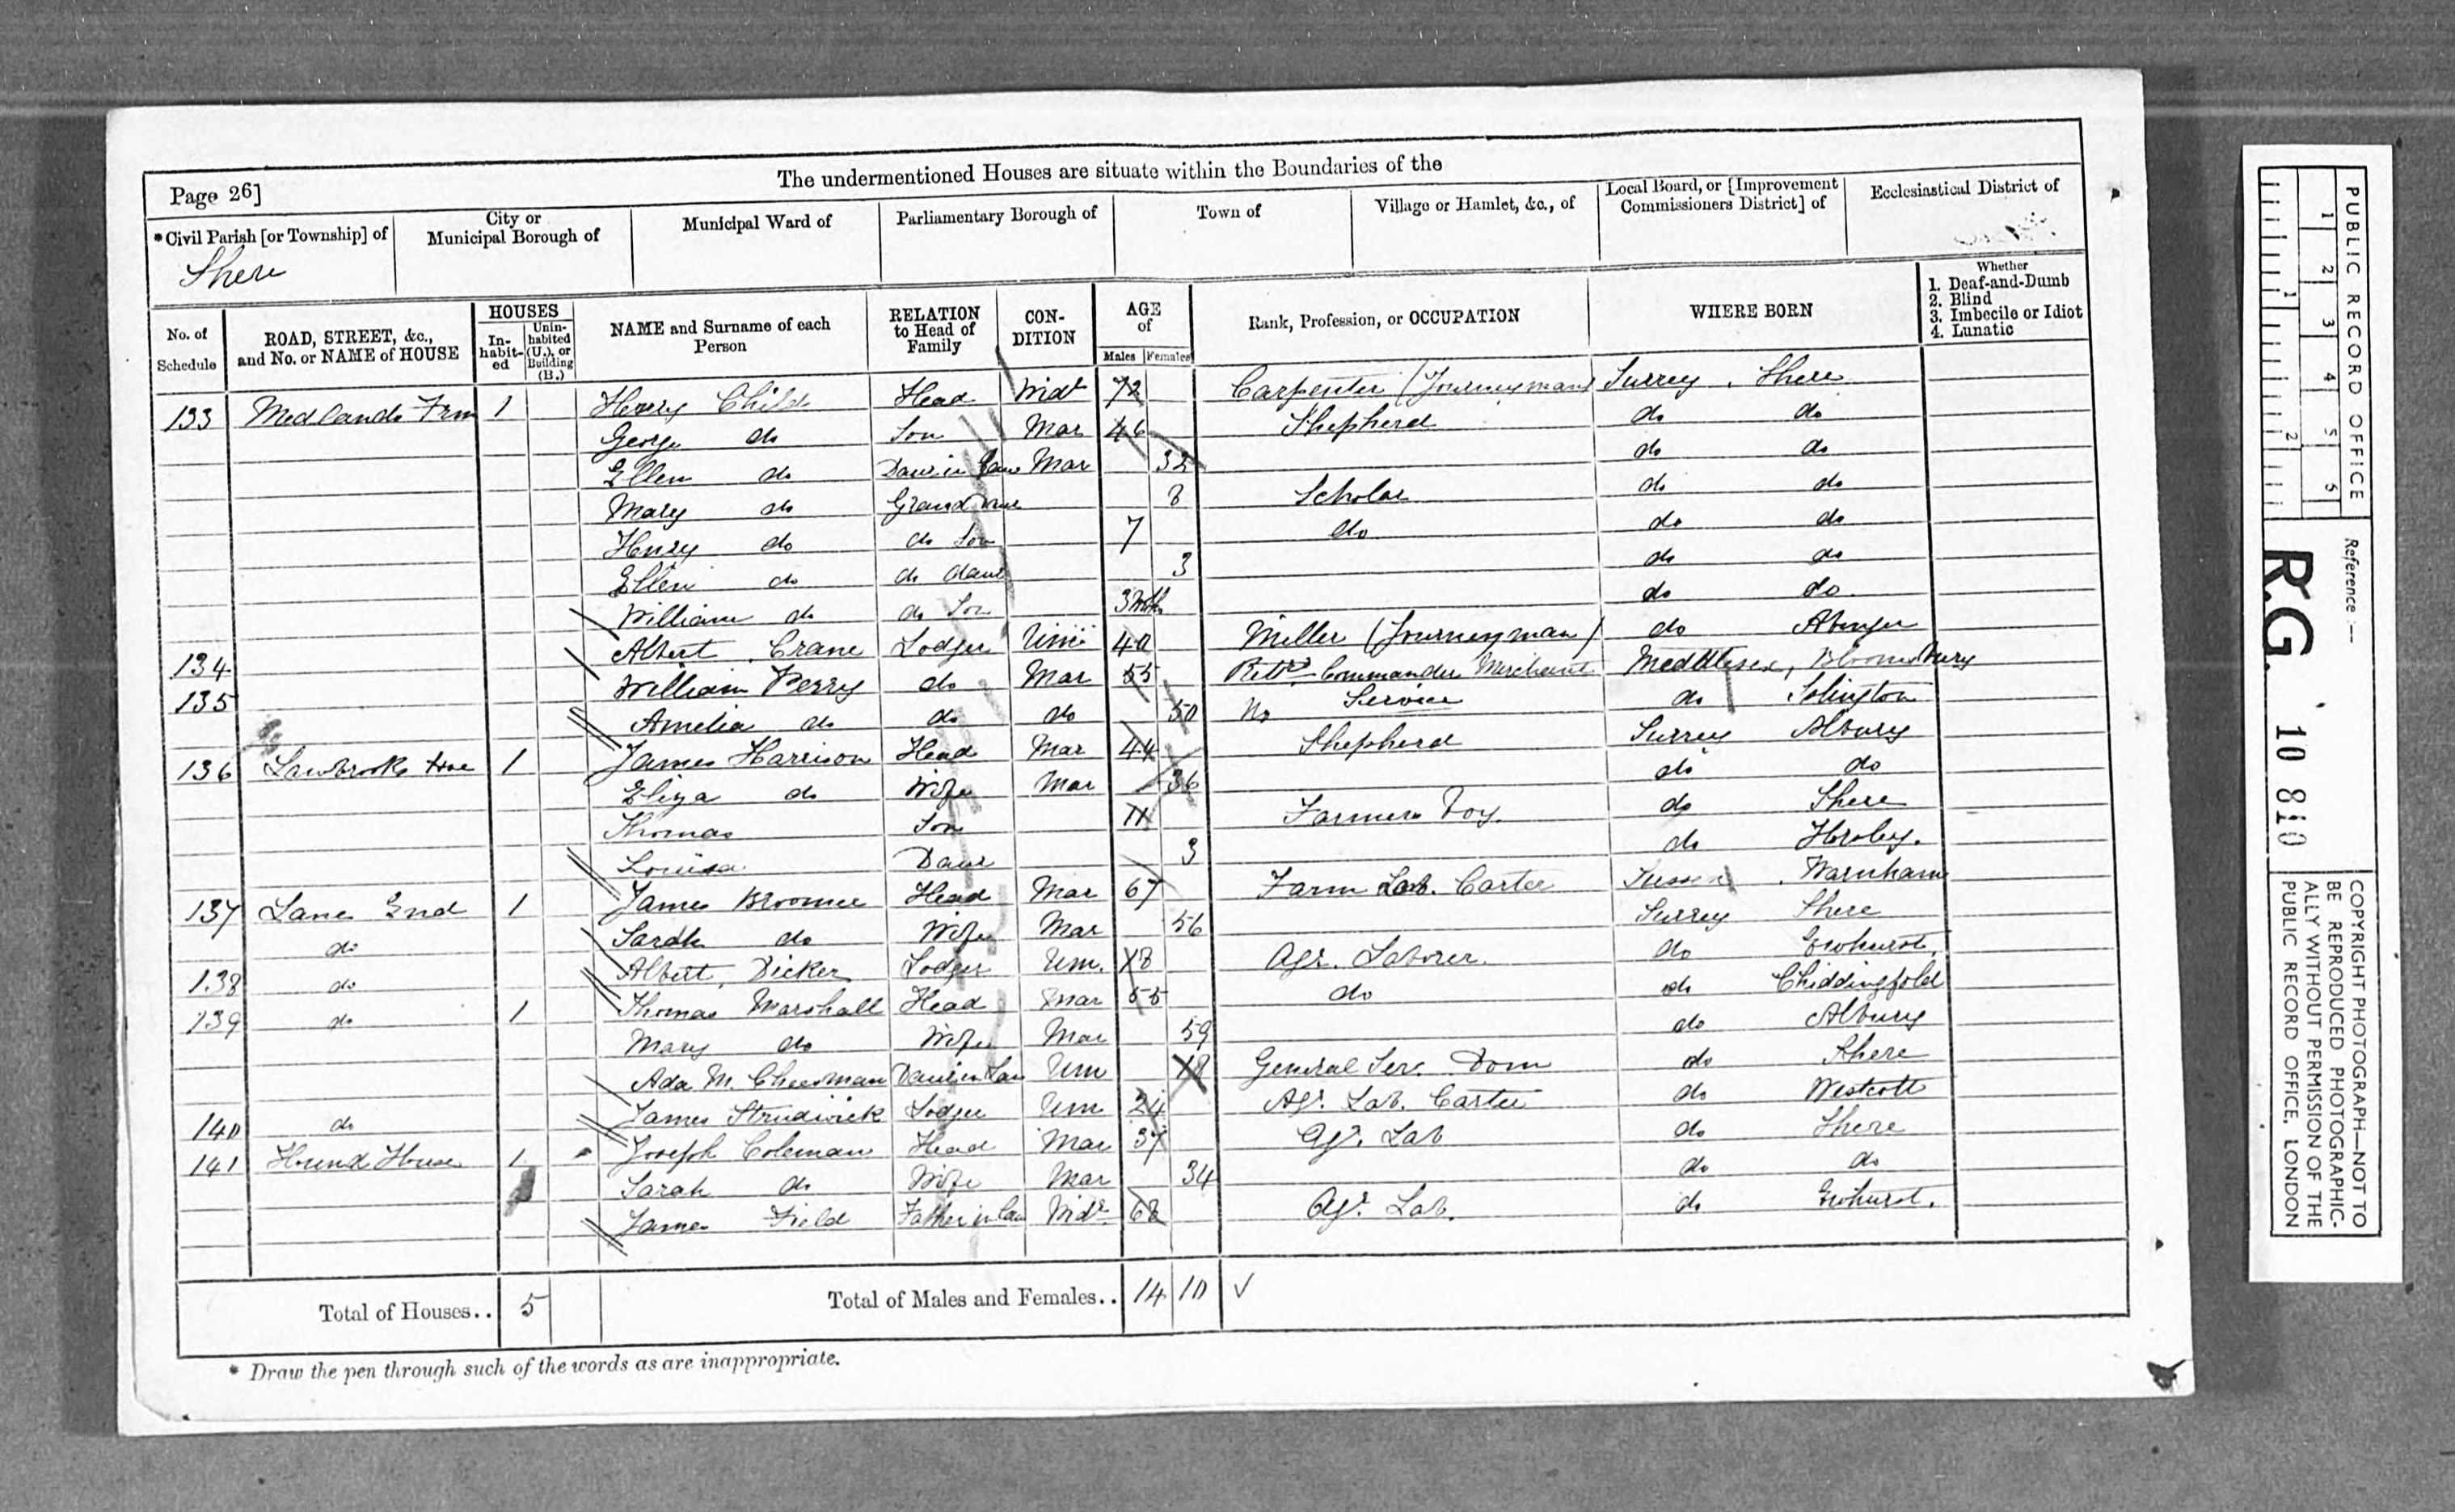 The undermentioned Houses are situate within the Boundaries of the
Page 26]
*Civil Parish [or Township] of
City or Municipal Borough of
Municipal Ward of
Parliamentary Borough of
Town of
Village or Hamlet, &c., of
Local Board, or [Improvement Commissioners District] of
Ecclesiastical District of
Shere
No. of Schedule
ROAD, STREET, &c., and No. or NAME of HOUSE
HOUSES
In-habit-ed
Unin-habited (U.), or Building (B.)
NAME and Surname of each Person
RELATION to Head of Family
CON-DITION
AGE of
Males Females
Rank, Profession, or OCCUPATION
WHERE BORN
Whether
1. Deaf-and-Dumb
2. Blind
3. Imbecile or Idiot
4. Lunatic
133 Medlands Frm 1 Henry Child Head Widr 72 Carpenter (Journeyman) Surrey Shere
George do Son Mar 46 Shepherd do do
Ellen do Daur in Law Mar 32 do do
Mary do Grand Daur 8 Scholar do do
Henry do do Son 7 do do do
Ellen do do daur 3 do do
William do do Son 3 Mth do do
134 Albert Crane Lodger Unm 40 Miller (Journeyman) do Abinger
135 William Perry do Mar 55 Retd Commander Merchant Middlesex, Bloomsbury
Amelia do do do 50 No Service do Islington
136 Lawbrooks Hse 1 James Harrison Head Mar 44 Shepherd Surrey Albury
Eliza do Wife Mar 36 do do
Thomas Son 11 Farmers Boy. do Shere
Louisa Daur 3 do Horsley.
137 Lane End 1 James Broomer Head Mar 67 Farm Lab. Carter Sussex Warnham
do Sarah do Wife Mar 56 Surrey Shere
138 do Albert Dicker Lodger Unm. 18 Agr. Laborer. do Ewhurst.
139 do 1 Thomas Marshall Head Mar 55 do do Chiddingfold
Mary do Wife Mar 59 do Albury
Ada M. Cheesman Daur in Law Unm 18 General Serv. Dom do Shere
140 do James Strudwick Lodger Unm 24 Agr. Lab. Carter do Westcott
141 Hound House 1 Joseph Coleman Head Mar 37 Agr. Lab do Shere
Sarah do Wife Mar 34 do do
James Field Father in Law Widr 68 Agr. Lab. do Ewhurst.
Total of Houses.. 5
Total of Males and Females.. 14 10 ✓
* Draw the pen through such of the words as are inappropriate.
PUBLIC RECORD OFFICE
1 2 3 4 5 6
1 2
Reference :—
R.G. 10 810
COPYRIGHT PHOTOGRAPH—NOT TO
BE REPRODUCED PHOTOGRAPHIC-
ALLY WITHOUT PERMISSION OF THE
PUBLIC RECORD OFFICE, LONDON